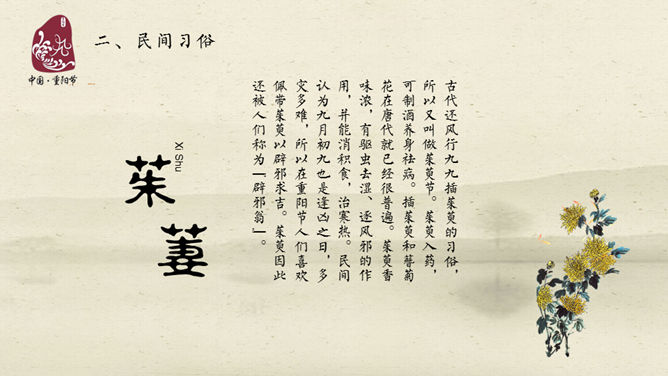 中国·重阳节
二、民间习俗
古代还风行九九插茱萸的习俗，
所以又叫做茱萸节。茱萸入药，
可制酒养身祛病。插茱萸和簪菊
花在唐代就已经很普遍。茱萸香
味浓，有驱虫去湿、逐风邪的作
用，并能消积食，治寒热。民间
认为九月初九也是逢凶之日，多
灾多难，所以在重阳节人们喜欢
佩带茱萸以辟邪求吉。茱萸因此
还被人们称为「辟邪翁」。
Xi Shu
茱
萸